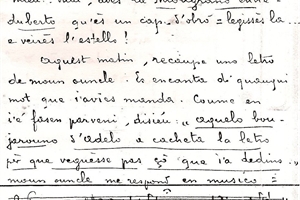 duberto qu'es un cap-d'obro = legissès la...
e veirés l'estello!
Aquest matin, reçaupe uno letro
de moun ouncle. Es encanta di quauqui
mot que i'aviés manda. Coume en
i'é fasen parveni, disiéu: „aqualo bou-
jarouno d'Adelo a cacheta la letro
pèr que veguèsse pas çò que i'a dedins„
moun ouncle me respond en musico =